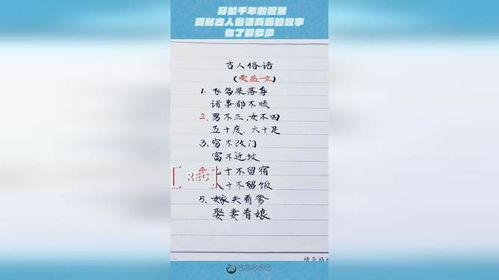 穿越千年的智慧
揭秘古人俗语背后的故事
你了解多少
古人俗语
1. 飞鸟屎落身
诸事都不顺
2. 男不三,女不四
五十虎 六十足
3. 穷不改门
富不迁坟
十不留宿
十不留饭
5. 嫁夫看爹
娶妻看娘
REC